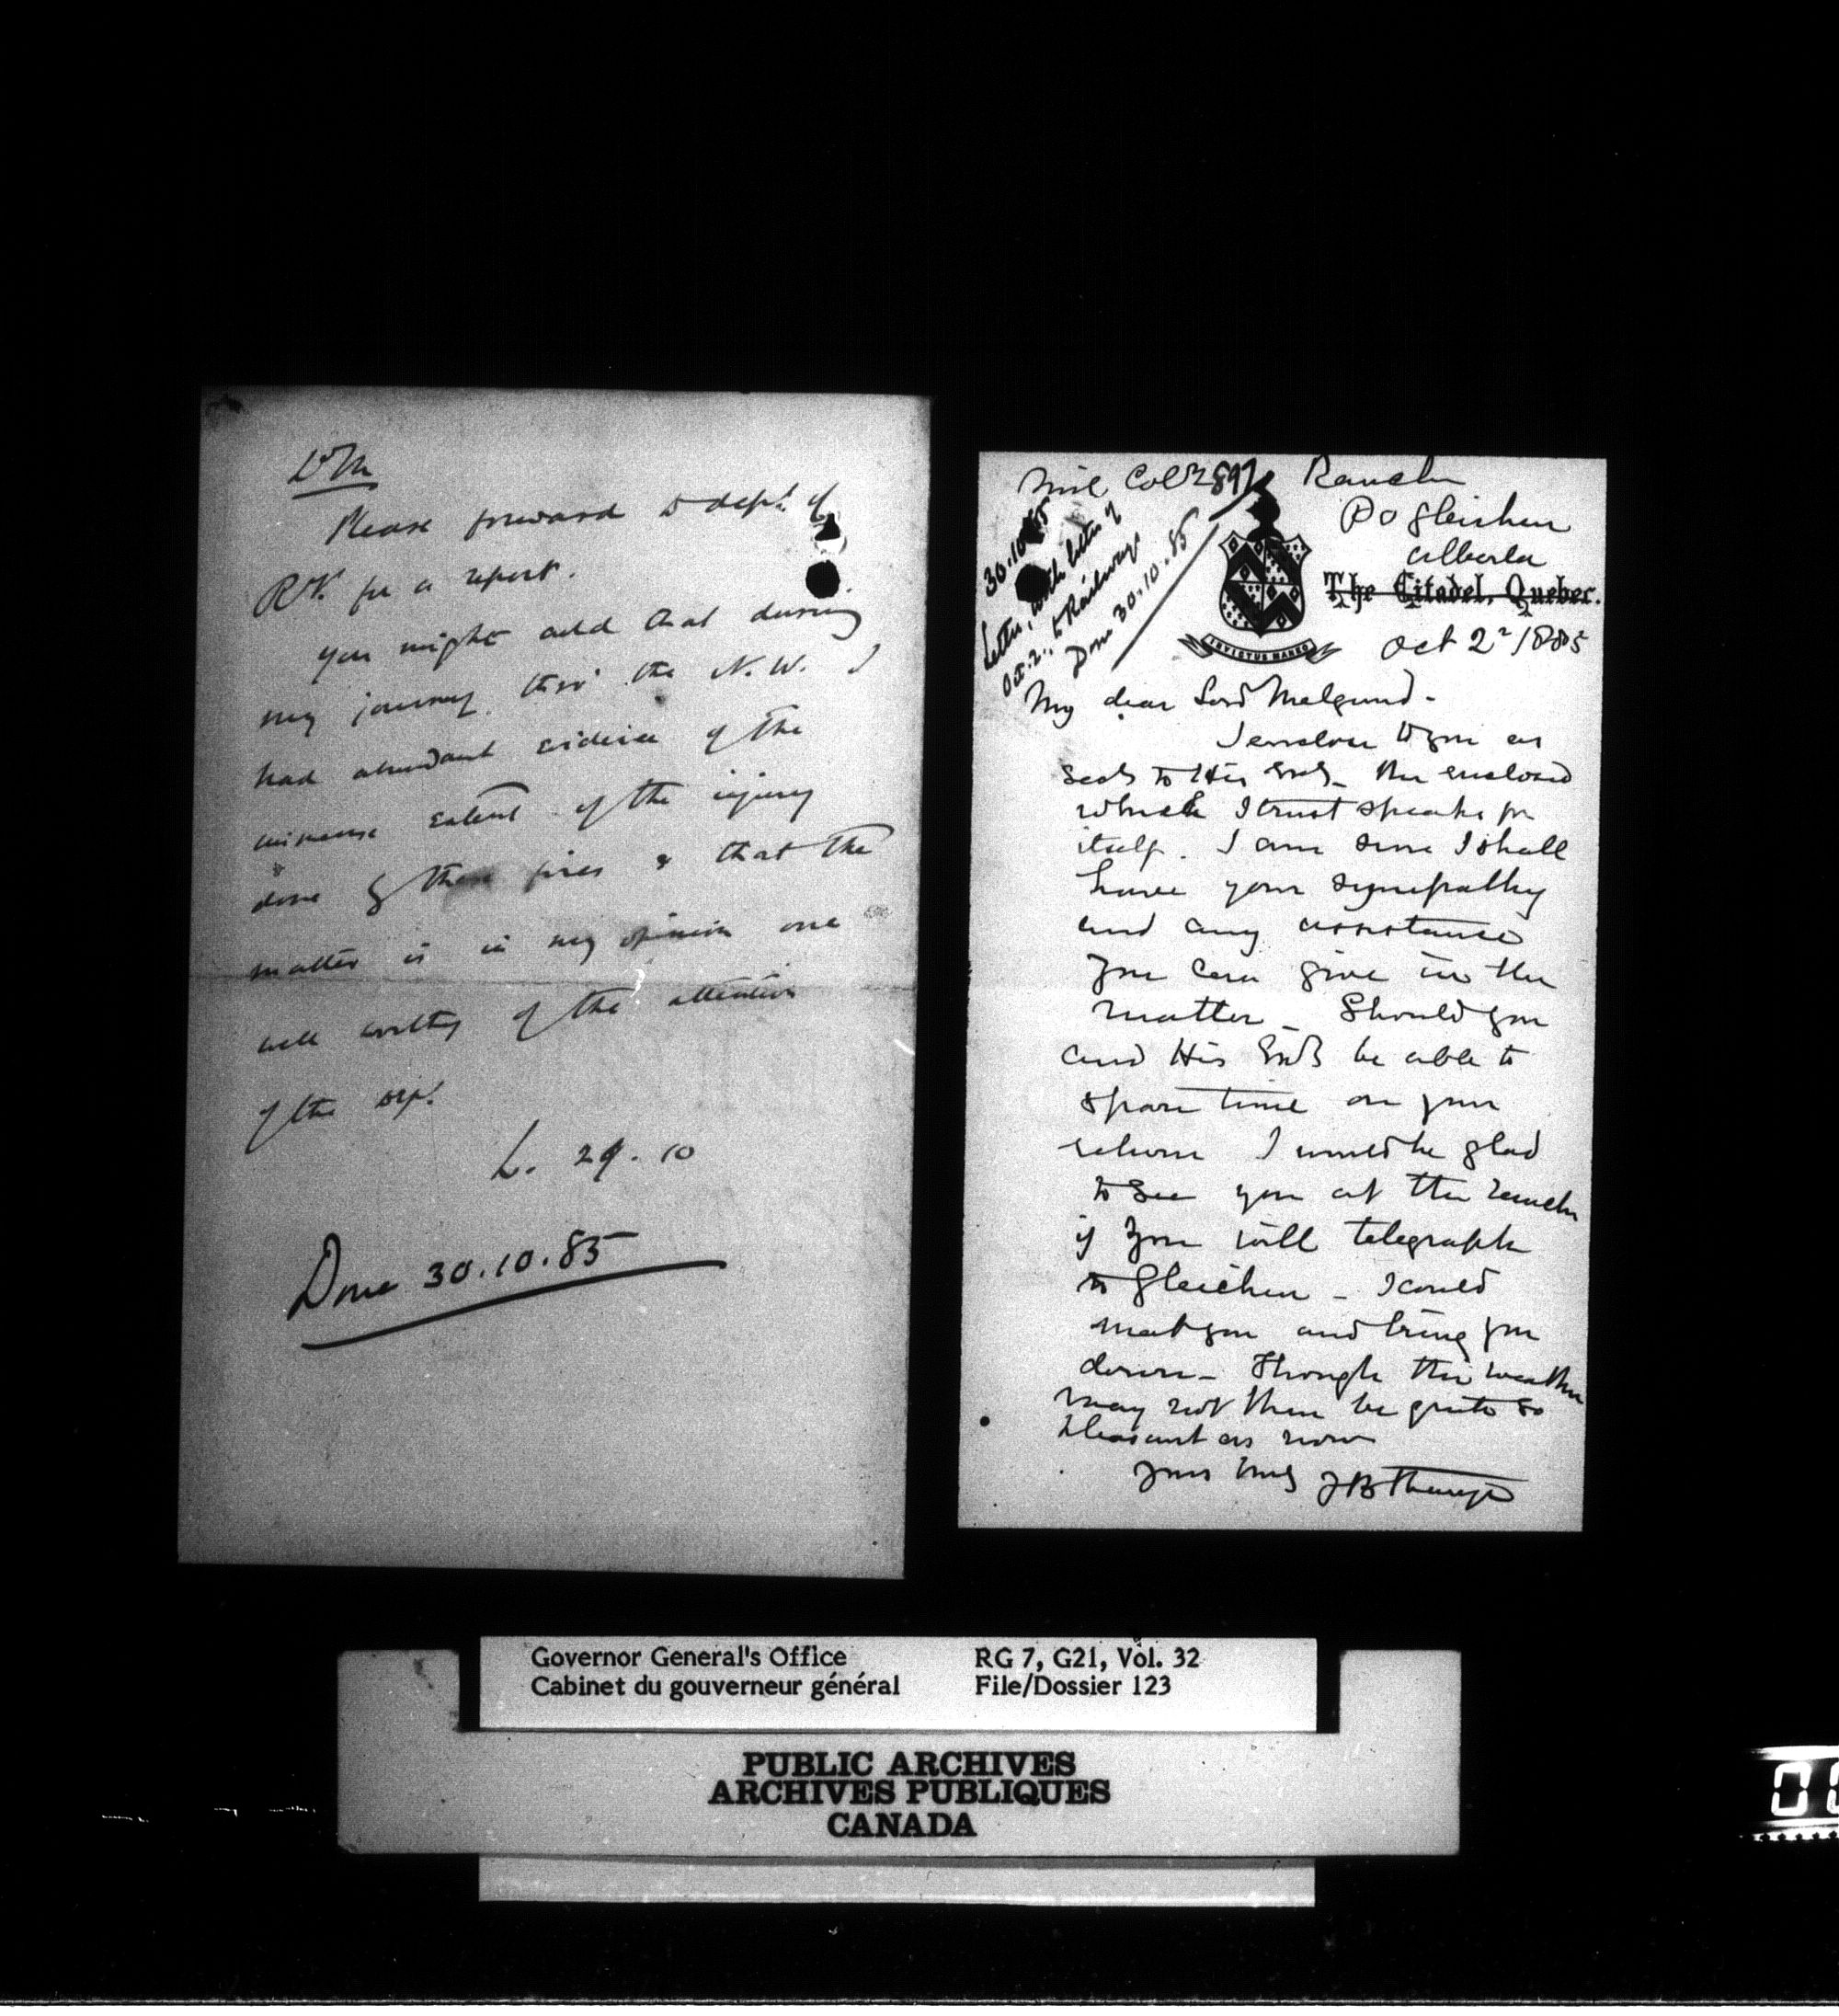 Ld M
Please forward to dept. of
RR. for a report.
You might add that during
my journey thro' the N.W. I
had abundant evidence of the
immense extent of the injury
done by these fires & that the
matter is in my opinion one
well worthy of the attention
of the dept.
L. 29.10
Done 30.10.85
Mil Col 2897
30.10.85
Letter, with letter of
Oct. 2., to Railways
Done 30.10.85
Ranch
P O Gleichen
Alberta
The Citadel, Quebec.
INVICTUS MANEO
Oct 2 1885
My dear Lord Melgund -
I enclose to you as
Secy to His Excy - the enclosed
which I trust speaks for
itself. I am sure I shall
have your sympathy
and any assistance
you can give in the
matter - Should you
and His Excy be able to
spare time on your
return I would be glad
to see you at the ranch
if you will telegraph
to Gleichen - I could
meet you and bring you
down - Though the weather
may not then be quite so
pleasant as now
Yours truly
Governor General's Office
Cabinet du gouverneur général
RG 7, G21, Vol. 32
File/Dossier 123
PUBLIC ARCHIVES
ARCHIVES PUBLIQUES
CANADA